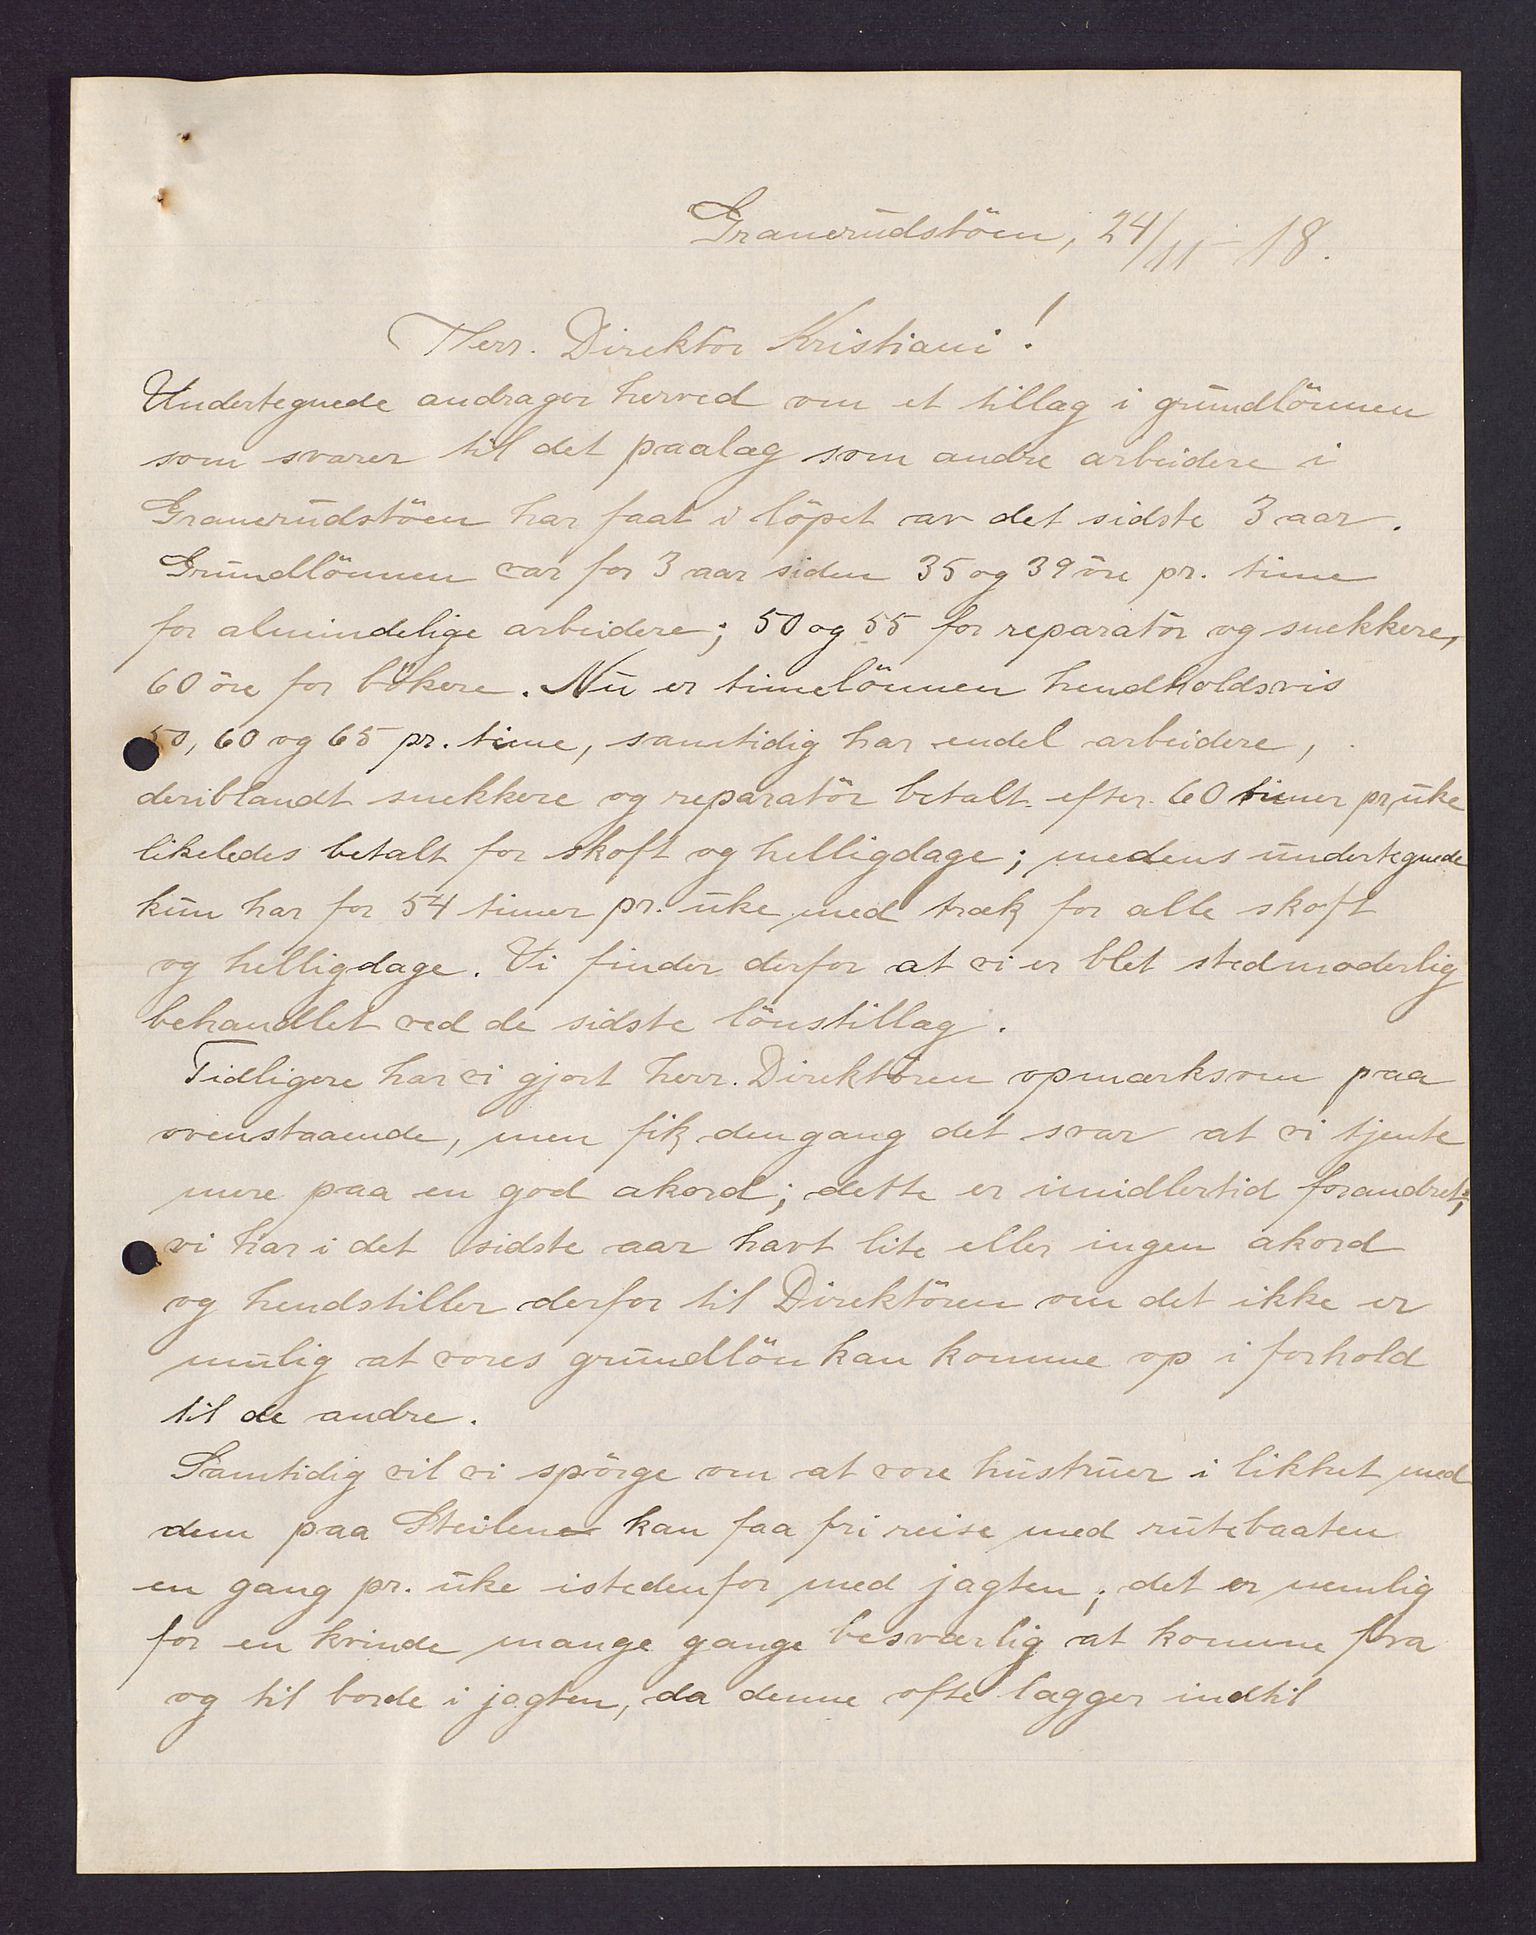 Granerudstöen, 24/11-18.
Herr. Direktör Kristiani!
Undertegnede andrager herved om et tillæg i grundlönnen
som svarer til det paalæg som andre arbeidere i
Granerudstöen har faat i löpet av det sidste 3 aar.
Grundlönnen var for 3 aar siden 35 og 39 öre pr. time
for almindelige arbeidere; 50 og 55 for reparatör og snekkere,
60 öre for bökere. Nu er timelönnen hendholdsvis
50, 60 og 65 pr. time, samtidig har endel arbeidere,
deriblandt snekkere og reparatör betalt efter 60 timer pr, uke
likeledes betalt for skoft og helligdage; medens undertegnede
kun har for 54 timer pr. uke med træk for alle skoft
og helligdage. Vi finder derfor at vi er blet stedmoderlig
behandlet ved de sidste lönstillæg.
Tidligere har vi gjort herr. Direktören opmærksom paa
ovenstaaende, men fik dengang det svar at vi tjente
mere paa en god akord; dette er imidlertid forandret;
vi har i det sidste aar havt lite eller ingen akord
og hendstiller derfor til Direktören om det ikke er
mulig at vores grundlön kan komme op i forhold
til de andre.
Samtidig vil vi spörge om at vore hustruer i likhet med
dem paa Steilene kan faa fri reise med rutebaaten
en gang pr. uke istedenfor med jagten; det er nemlig
for en kvinde mange gange besværlig at komme fra
og til borde i jagten, da denne ofte lægger indtil